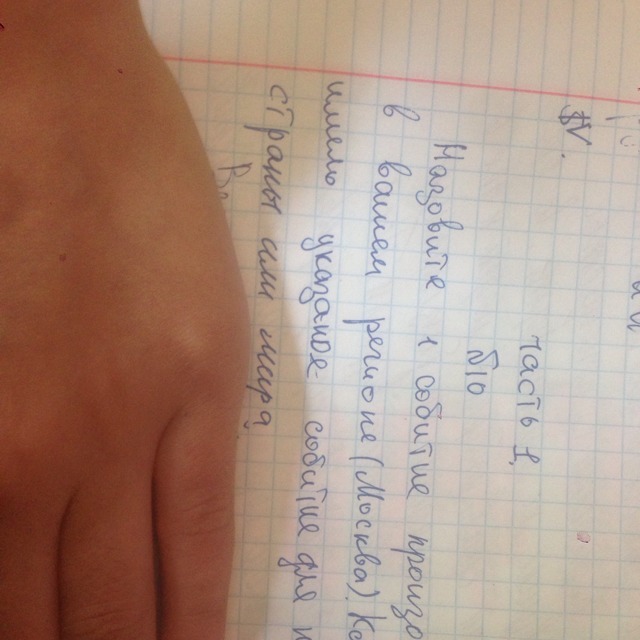 часть 1,
§10
Назовите 1 событие произо
в вашем регионе (Москва). Ка
имело указаное событие для н
страны или мира